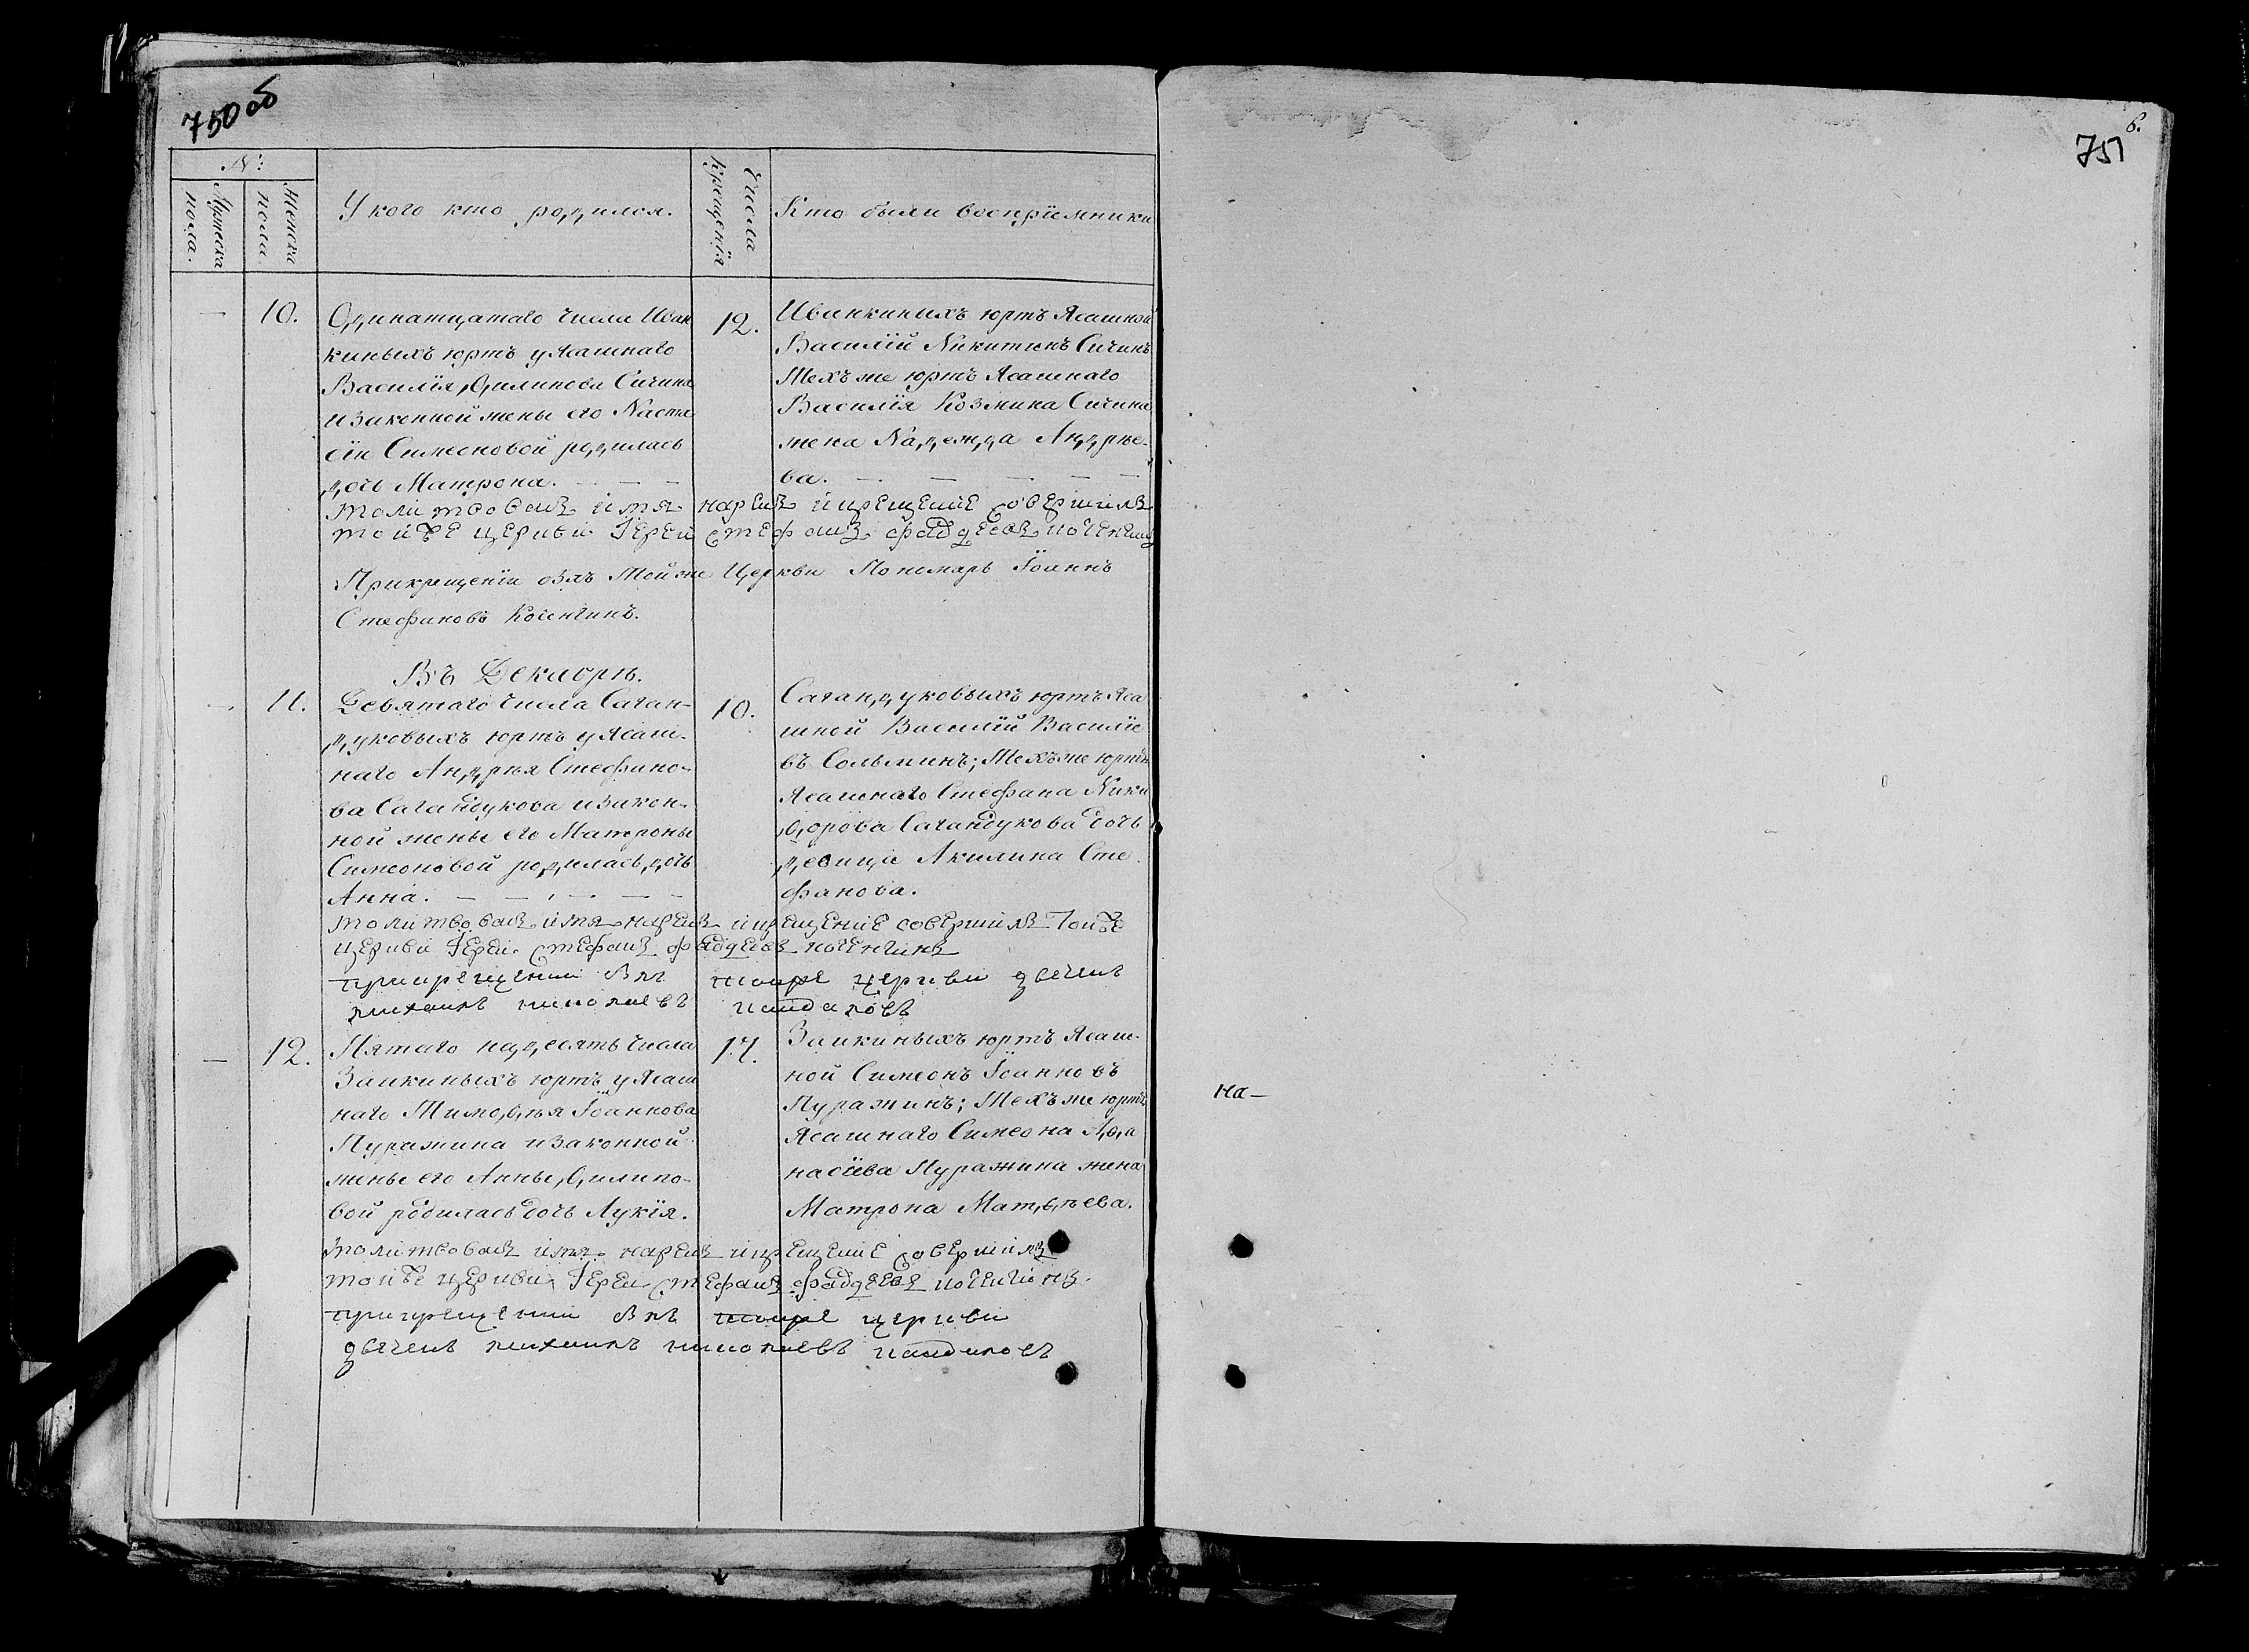 750 об
№:
Мужеска пола.
Женска пола.
У кого кто родился.
Числа крещенія
Кто были воспріемники
— 10.
Одинатцатаго числа Иван
киныхъ юртъ у Ясашнаго
Василія Ѳилипова Сичина
и законной жены его Наста
сіи Симеоновой родилась
дочь Матрона. — — —
12.
Иванкиныхъ юртъ Ясашной
Василій Никитинъ Сичинъ
Техъ же юртъ Ясашнаго
Василія Козмина Сичина
жена Надежда Андрѣе-
ва. — — — — —
молитвовалъ имя нарекъ и крещение совершилъ
тойже церкви Іерей Стефанъ Фаддеевъ Коченгинъ
При крещеніи былъ Той же Церкви Пономарь Іоаннъ
Стефановъ Коченгинъ.
Въ Декабрѣ.
— 11.
Девятаго числа Саган-
дуковыхъ юртъ у Ясаш-
наго Андрѣя Стефано-
ва Сагандукова и закон-
ной жены его Матроны
Симеоновой родилась дочь
Анна. — — — — —
10.
Сагандуковыхъ юртъ Яса
шной Василій Василіе
въ Сольминъ; Техъ же юртъ
Ясашнаго Стефана Ники
Ѳорова Сагандукова дочь
девица Акилина Сте
фанова.
молитвовалъ имя нарекъ и крещение совершилъ Тойже
церкви Іерей Стефанъ Фаддеевъ Коченгинъ
при крещении былъ тойже церкви
— 12.
Пятаго надесять числа
Заикиныхъ юртъ у Ясаш
наго Тимоѳѣя Іоаннова
Пуражина и законной
жены его Анны Ѳилипо-
вой родилась дочь Лукія.
17.
Заикиныхъ юртъ Ясаш-
ной Симеонъ Іоанновъ
Пуражинъ; Техъ же юртъ
Ясашнаго Симеона Аѳа
насіева Пуражина жена
Матрона Матѳѣева.
молитвовалъ имя нарекъ и крещение совершилъ
тойже церкви Іерей Стефанъ Фаддеевъ Коченгинъ.
при крещении былъ тойже церкви
6.
751
на-